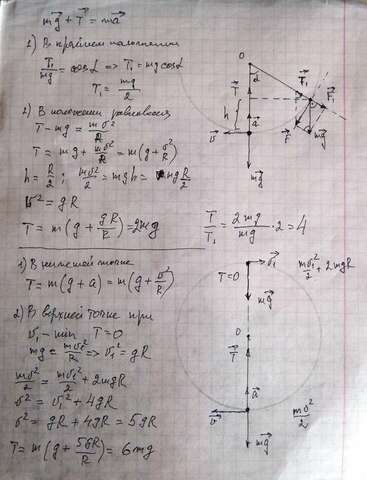 mg⃗ + T⃗ = ma⃗
1) В крайнем положении
T₁/mg = cosα => T₁ = mg cosα
T₁ = mg/2
2) В положении равновесия
T - mg = mv²/R
T = mg + mv²/R = m(g + v²/R)
h = R/2; mv²/2 = mgh = mgR/2
v² = gR
T = m(g + gR/R) = 2mg
T/T₁ = 2mg/mg · 2 = 4
O
α
T⃗
T⃗₁
F⃗₁
h
a⃗
F⃗
mg⃗
v⃗
mg⃗
1) В нижней точке
T = m(g + a) = m(g + v²/R)
2) В верхней точке при
v₁ - min T = 0
mg = mv₁²/R => v₁² = gR
mv²/2 = mv₁²/2 + 2mgR
v² = v₁² + 4gR
v² = gR + 4gR = 5gR
T = m(g + 5gR/R) = 6mg
v⃗₁
T=0
mv₁²/2 + 2mgR
mg⃗
O
T⃗
a⃗
v⃗
mv²/2
mg⃗